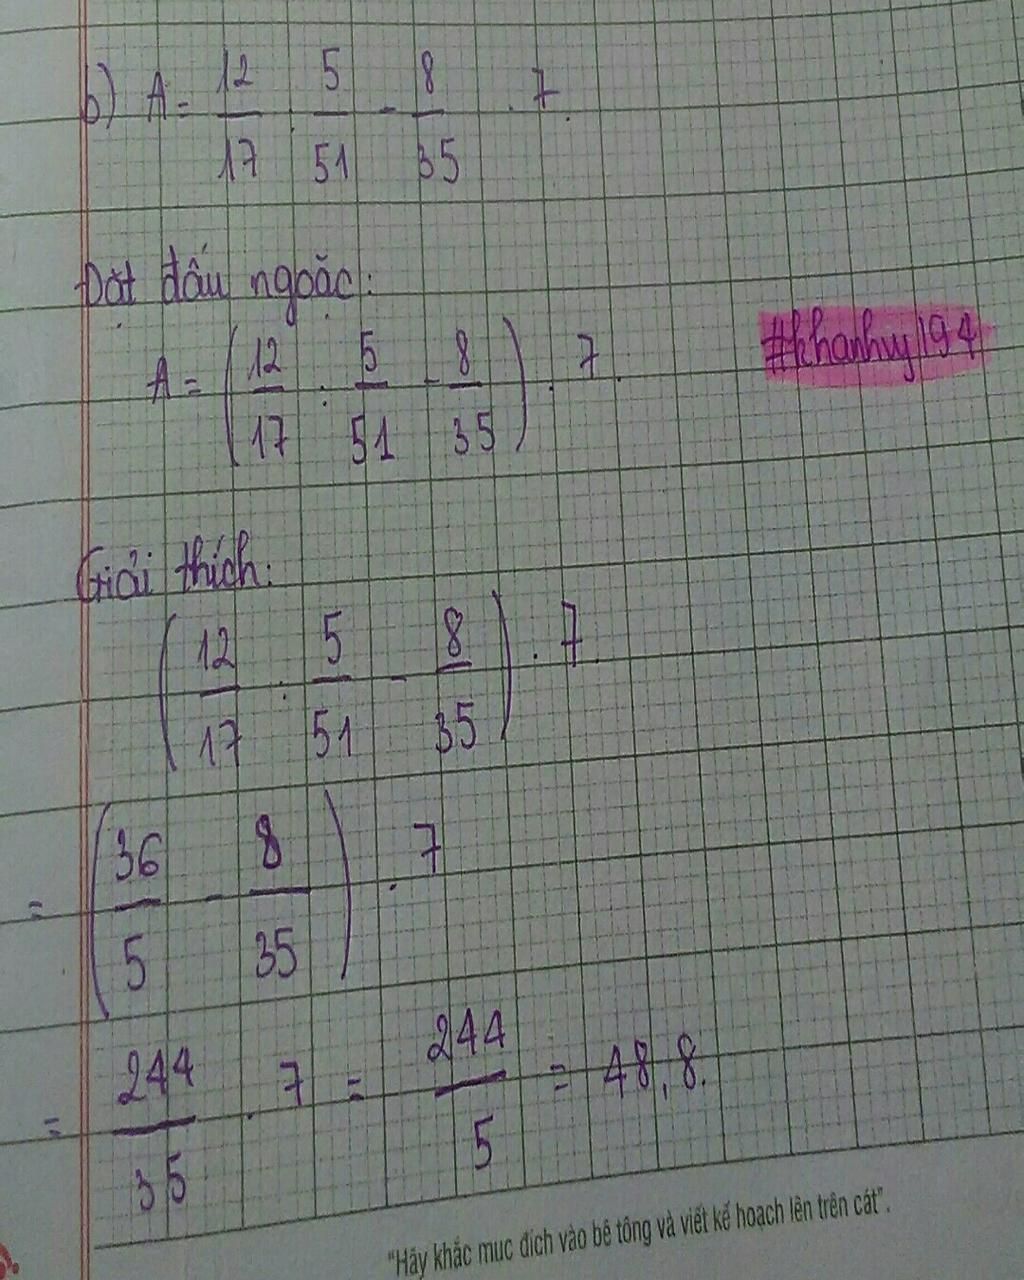 b) A = 12/17 : 5/51 - 8/35 . 7.
Đặt dấu ngoặc:
A = (12/17 : 5/51 - 8/35) . 7.
#khanhvy194
Giải thích:
(12/17 : 5/51 - 8/35) . 7.
= (36/5 - 8/35) . 7
= 244/35 . 7 = 244/5 = 48,8.
"Hãy khắc mục đích vào bê tông và viết kế hoạch lên trên cát".